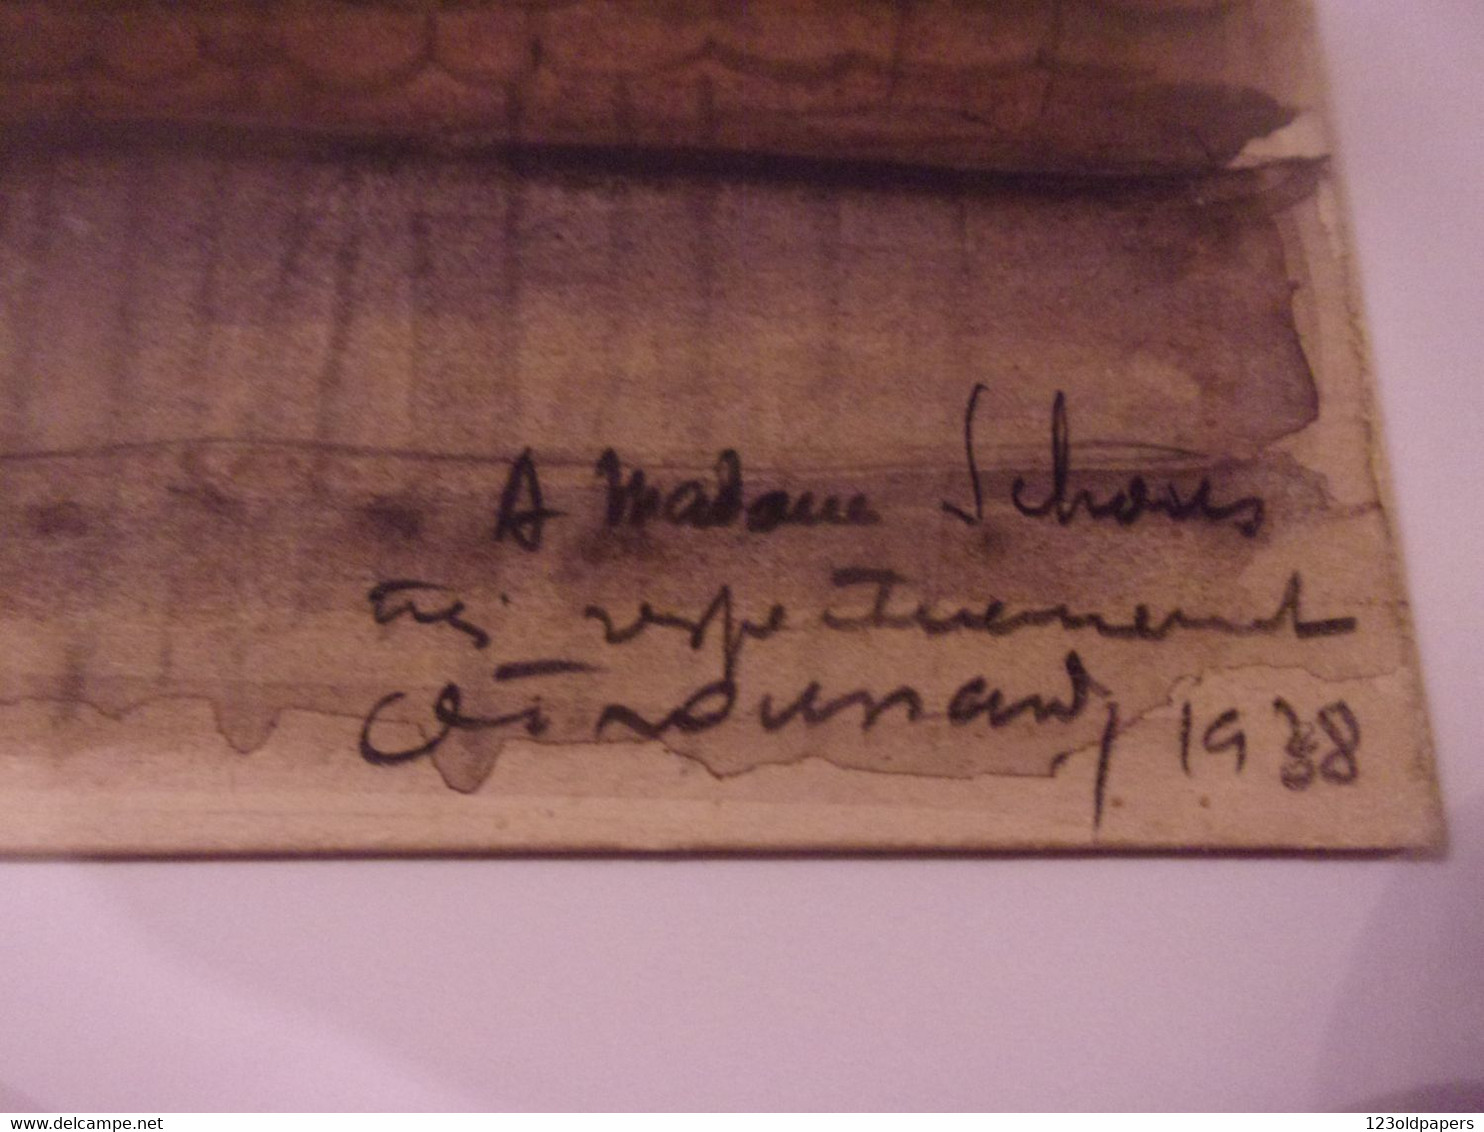 A Madame Schous
très respectueusement
Dunand, 1938
delcampe.net
123oldpapers